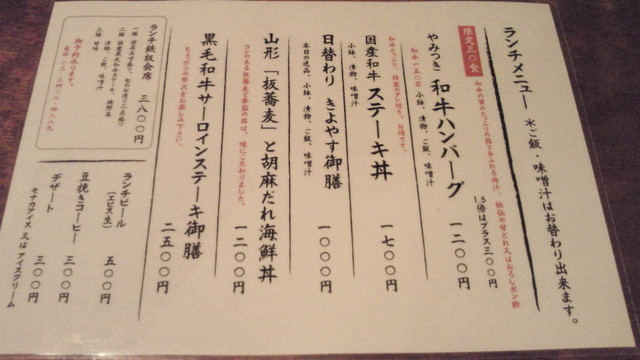 ランチメニュー ＊ご飯・味噌汁はお替わり出来ます。
限定三〇食
やみつき 和牛ハンバーグ 一二〇〇円
和牛一五〇g 小鉢、漬物、ご飯、味噌汁
1.5倍はプラス三〇〇円
国産和牛 ステーキ丼 一七〇〇円
小鉢、漬物、味噌汁
日替わり きよやす御膳 一〇〇〇円
本日の逸品、小鉢、漬物、ご飯、味噌汁
山形「板蕎麦」と胡麻だれ海鮮丼 一二〇〇円
黒毛和牛サーロインステーキ御膳 二五〇〇円
ちょっぴり贅沢をお楽しみ下さい。
ランチ鉄板会席 三八〇〇円
漬物、ご飯、味噌汁
三種 甘味
御予約承ります。
ランチビール
(エビス生) 五〇〇円
豆挽きコーヒー 三〇〇円
デザート 三〇〇円
モナカアイス又はアイスクリーム